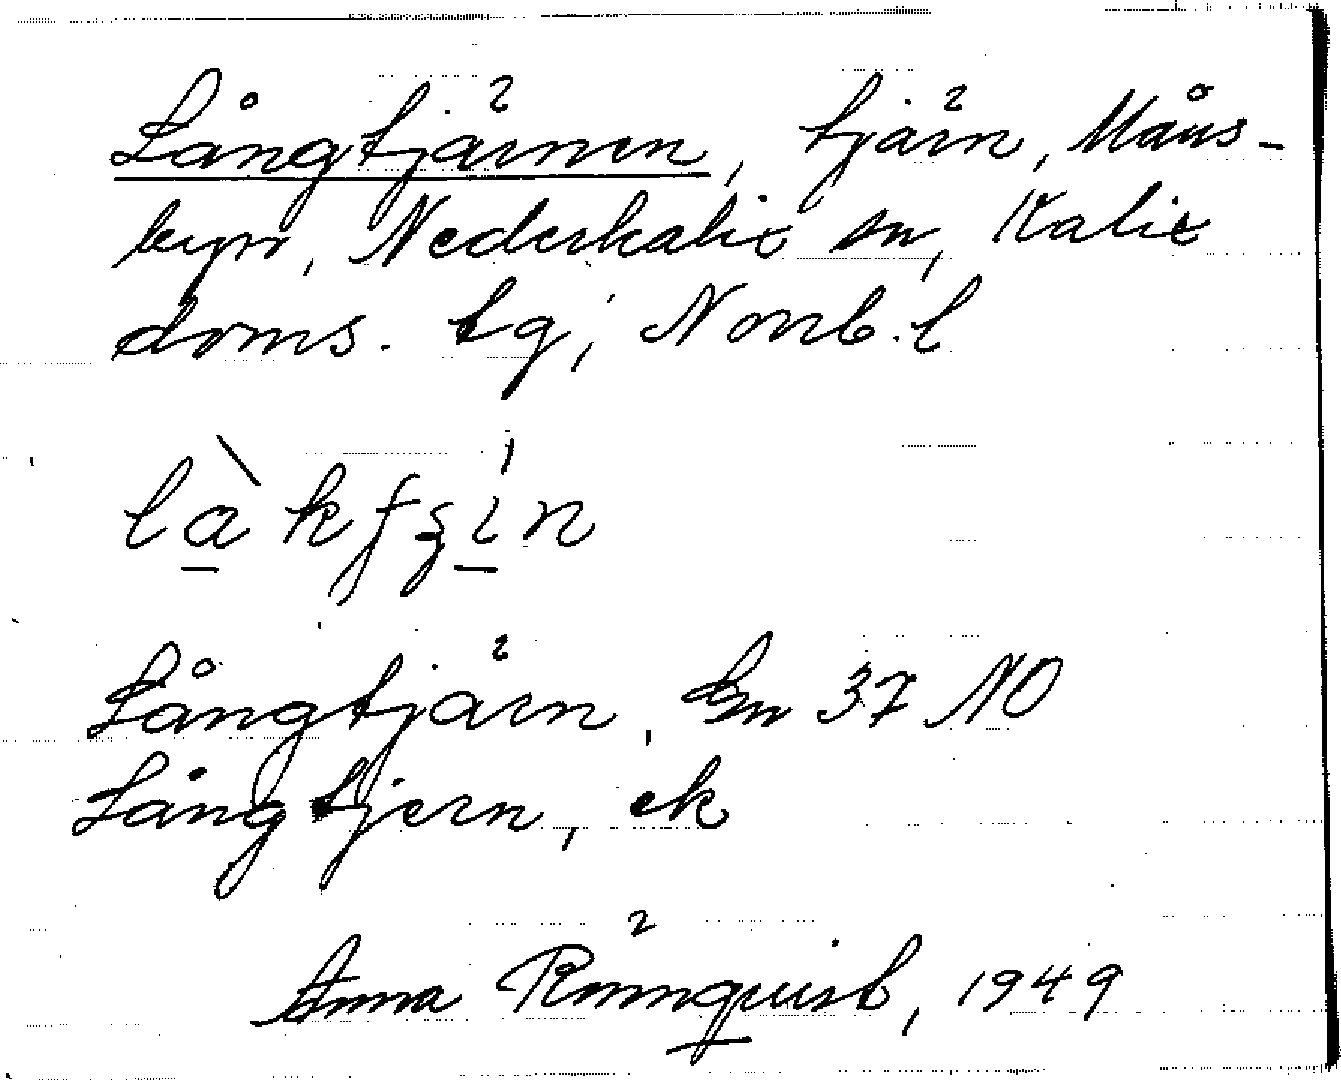 Långtjärnen, tjärn, Måns-
byn, Nederkalix sn, Kalix
doms. tg, Norrb. l
Långtjärn, Gn 37 NO
Långtjern, ek
Anna Rönnquist, 1949